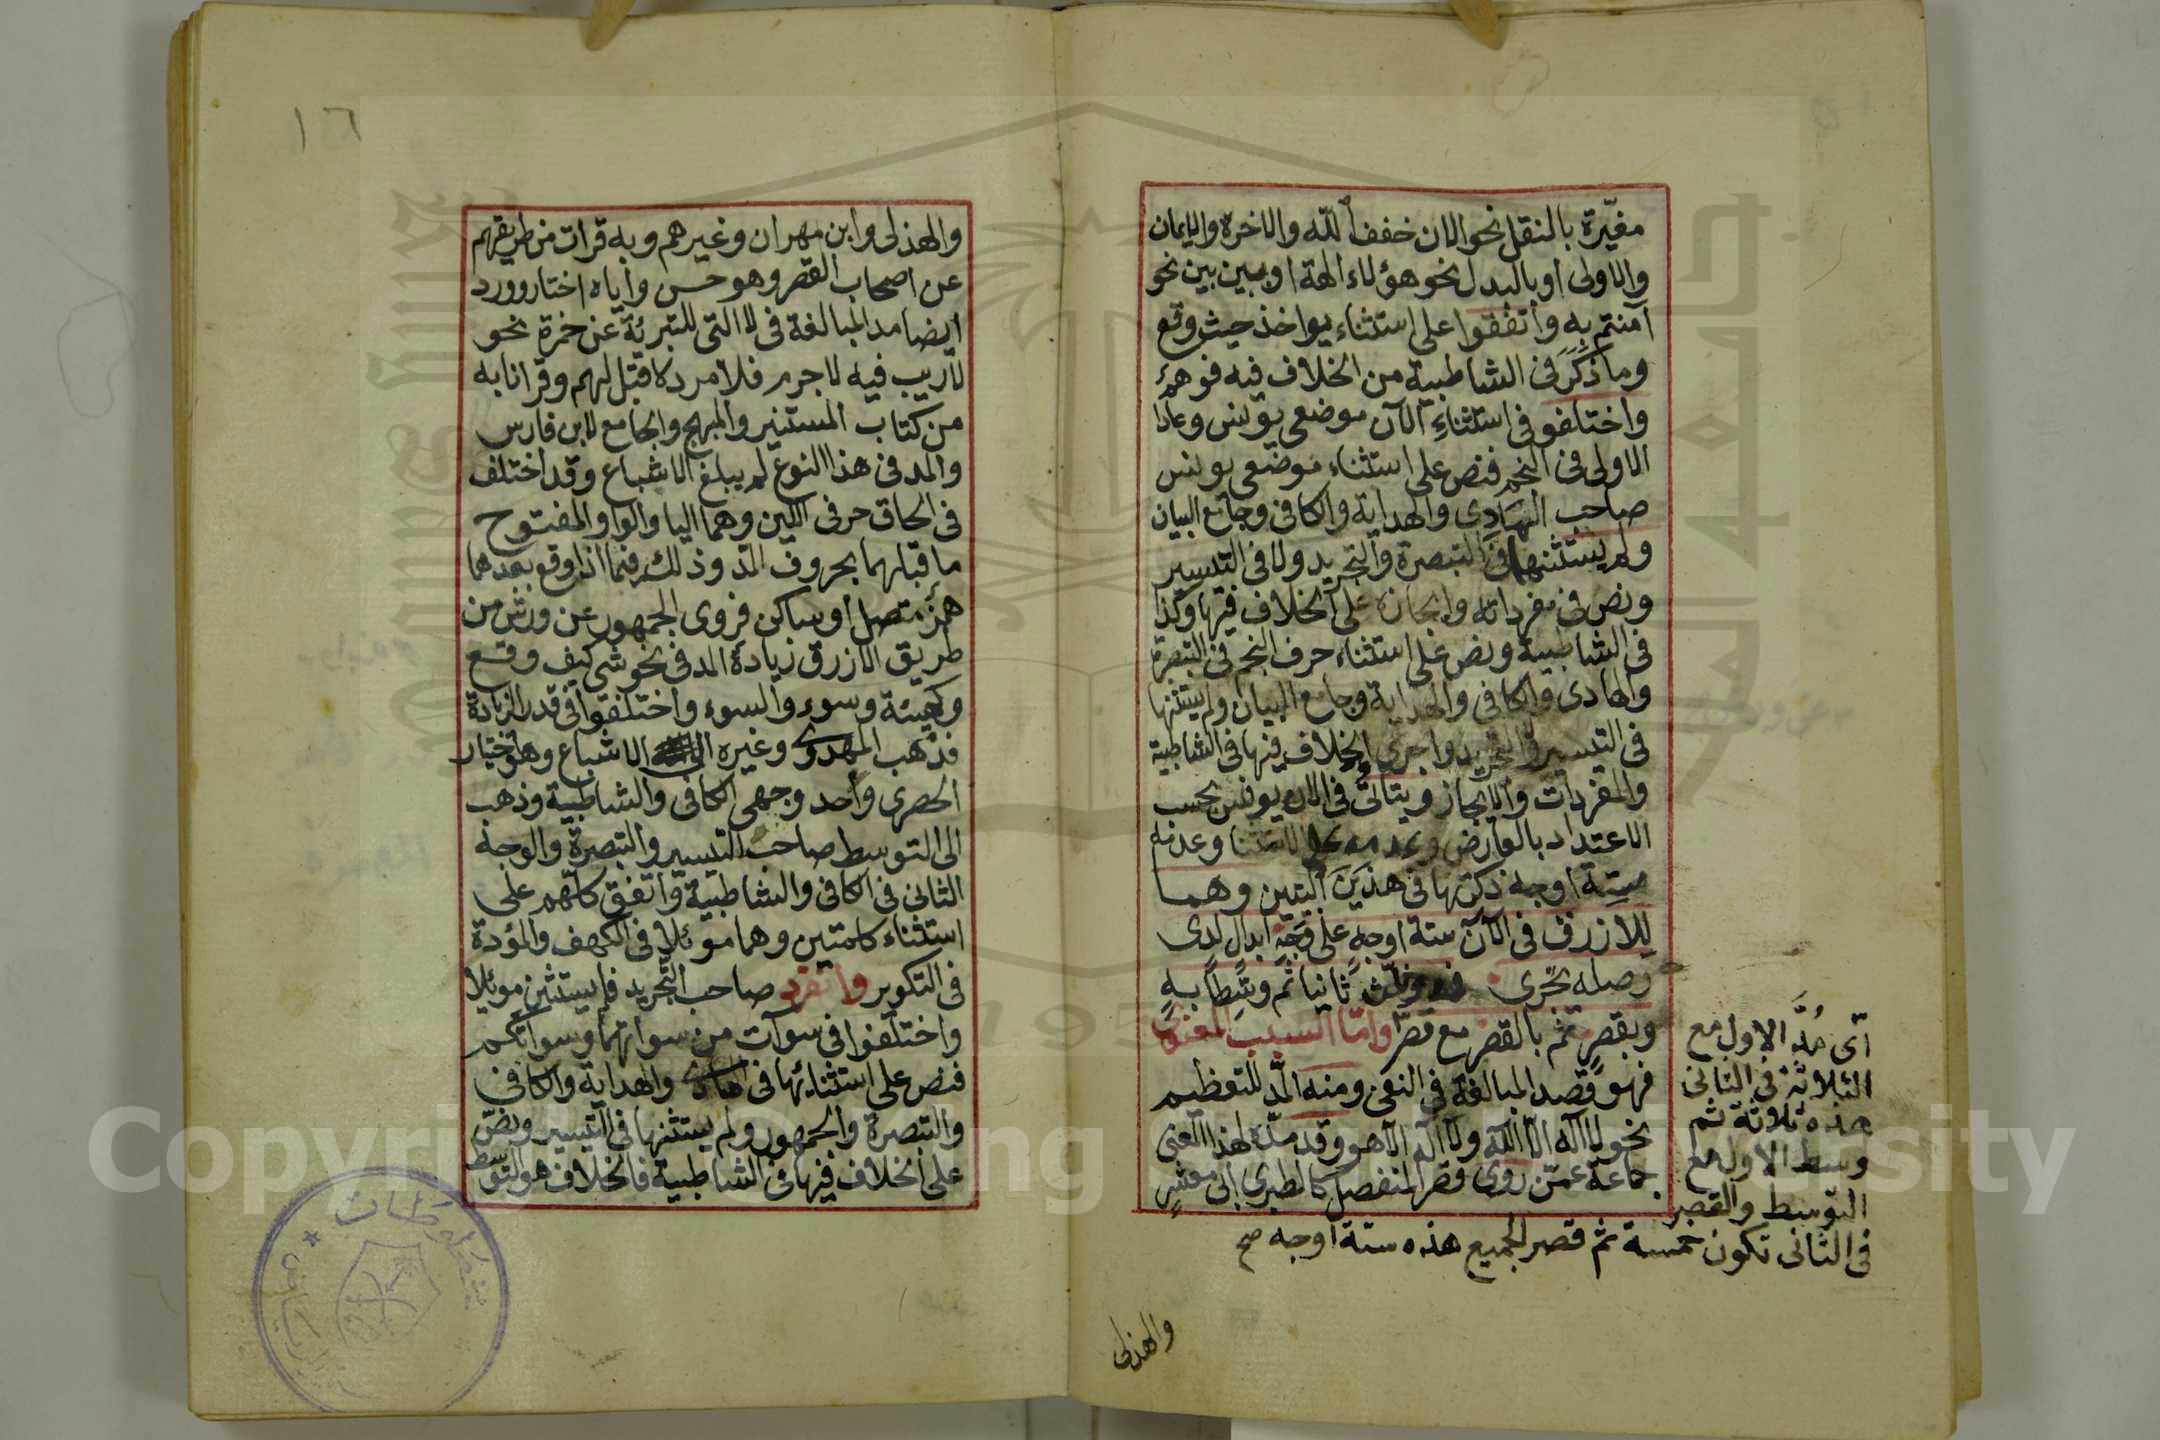 مغيّرة بالنقل نحو الان خفف الله والاخرة والايمان
والاولى او بالبدل نحو هؤلاء الهة او ببين بين نحو
آمنتم به واتفقوا على استثناء يواخذ حيث وقع
وما ذكر في الشاطبية من الخلاف فيه فوهم
واختلفو في استثناء الآن موضعي يونس وعادا
الاولى في النجم فنص على استثناء موضعي يونس
صاحب الهادى والهداية والكافى وجامع البيان
ولم يستثنها في التبصرة والتجريد ولا في التيسير
ونص في مفرداته وايجازه على الخلاف فيها وكذا
في الشاطبية ونص على استثناء حرف النجم في التبصرة
والهادى والكافى والهداية وجامع البيان ولم يستثنها
في التيسير والتجريد واجرى الخلاف فيها في الشاطبية
والمفردات والايجاز ويتأتى في الان يونس بحسب
الاعتداد بالعارض وعدمه على الاستثنا وعدمه
ستة اوجه ذكرتها في هذين البيتين وهما
للازرق في الآن ستة اوجه على وجه ابدال لدى
وصله تجرى فمد وثلث ثانيا ثم وسطا به
وبقصر ثم بالقصر مع قصر وامّا السبب المعنوى
فهو قصد المبالغة في النفى ومنه المدّ للتعظيم
نحو لا اله الا الله ولا اله الا هو وقد مدّه لهذا المعنى
جماعة عمّن روى قصر المنفصل كالطبرى ابى معشر
اى مُدَّ الاول مع
الثلاثة في الثانى
هذه ثلاثة ثم
وسط الاول مع
التوسط والقصر
في الثانى تكون خمسة ثم قصر الجميع هذه ستة اوجه صح
والهذلى
١٦
والهذلى وابن مهران وغيرهم وبه قرات من طريقهم
عن اصحاب القصر وهو حسن واياه اختار وورد
ايضا مد المبالغة فى لا التى للتبرئة عن حمزة نحو
لا ريب فيه لا جرم فلا مرد لا قبل لهم وقرانا به
من كتاب المستنير والمبهج والجامع لابن فارس
والمد فى هذا النوع لم يبلغ الاشباع وقد اختلف
فى الحاق حرفى اللين وهما اليا والواو المفتوح
ما قبلهما بحروف المد وذلك فيما اذا وقع بعدهما
همز متصل او ساكن فروى الجمهور عن ورش من
طريق الازرق زيادة المد فى نحو شى كيف وقع
وكهيئة وسوء والسوء واختلفوا فى قدر الزيادة
فذهب المهدوى وغيره الى الاشباع وهو اختيار
الحصرى واحد وجهى الكافى والشاطبية وذهب
الى التوسط صاحب التيسير والتبصرة والوجه
الثانى فى الكافى والشاطبية واتفق كلهم على
استثناء كلمتين وهما موئلا فى الكهف والمؤدة
فى التكوير وانفرد صاحب التجريد فلم يستثن موئلا
واختلفوا فى سوآت من سوآتهما وسوآتكم
فنص على استثنائها فى الهادى والهداية والكافى
والتبصرة والجمهور ولم يستثنها فى التيسير ونصّ
على الخلاف فيها فى الشاطبية فالخلاف هو التوسط